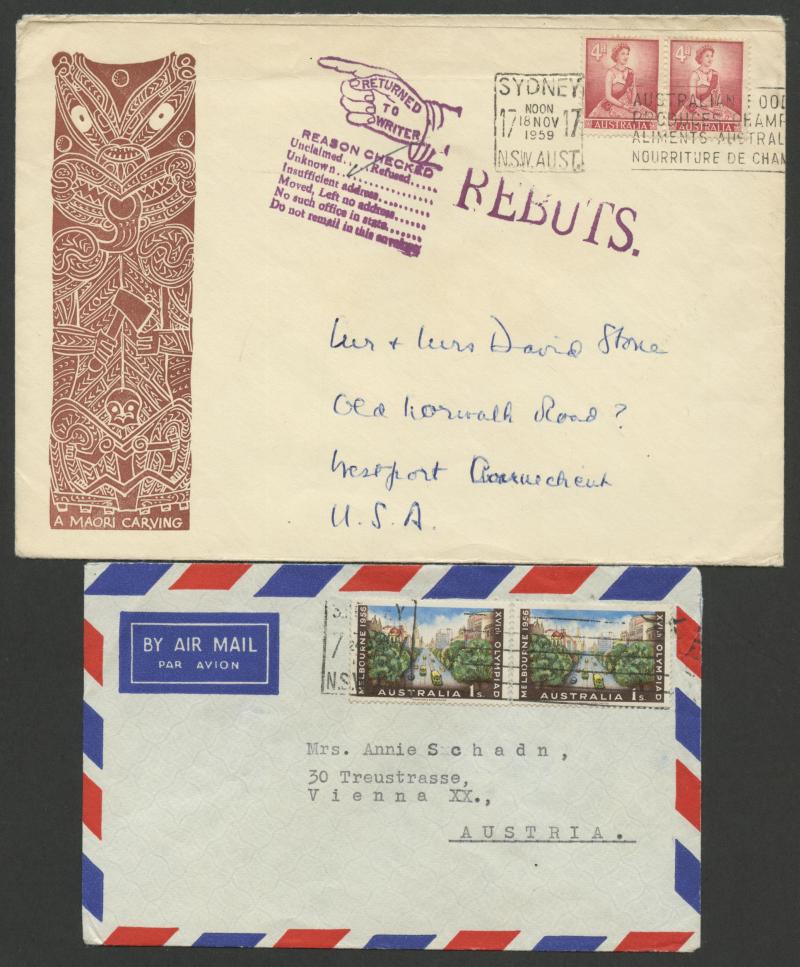 RETURNED
TO
WRITER
REASON CHECKED
Unclaimed.... Refused.....
Unknown............
Insufficient address........
Moved, Left no address......
No such office in state.......
Do not remail in this envelope
REBUTS.
SYDNEY
NOON
17 18 NOV 17
1959
N.S.W. AUST.
4d
AUSTRALIA
4d
AUSTRALIA
AUSTRALIAN FOOD
PRODUCES CHAMP
ALIMENTS AUSTRAL
NOURRITURE DE CHAM
Mr + Mrs David Stone
Old Norwalk Road?
Westport Connecticut
U.S.A.
A MAORI CARVING
BY AIR MAIL
PAR AVION
MELBOURNE 1956
XVIth OLYMPIAD
AUSTRALIA 1s.
MELBOURNE 1956
XVIth OLYMPIAD
AUSTRALIA 1s.
Y
7
N.S
Mrs. Annie Schadn,
30 Treustrasse,
Vienna XX.,
AUSTRIA.